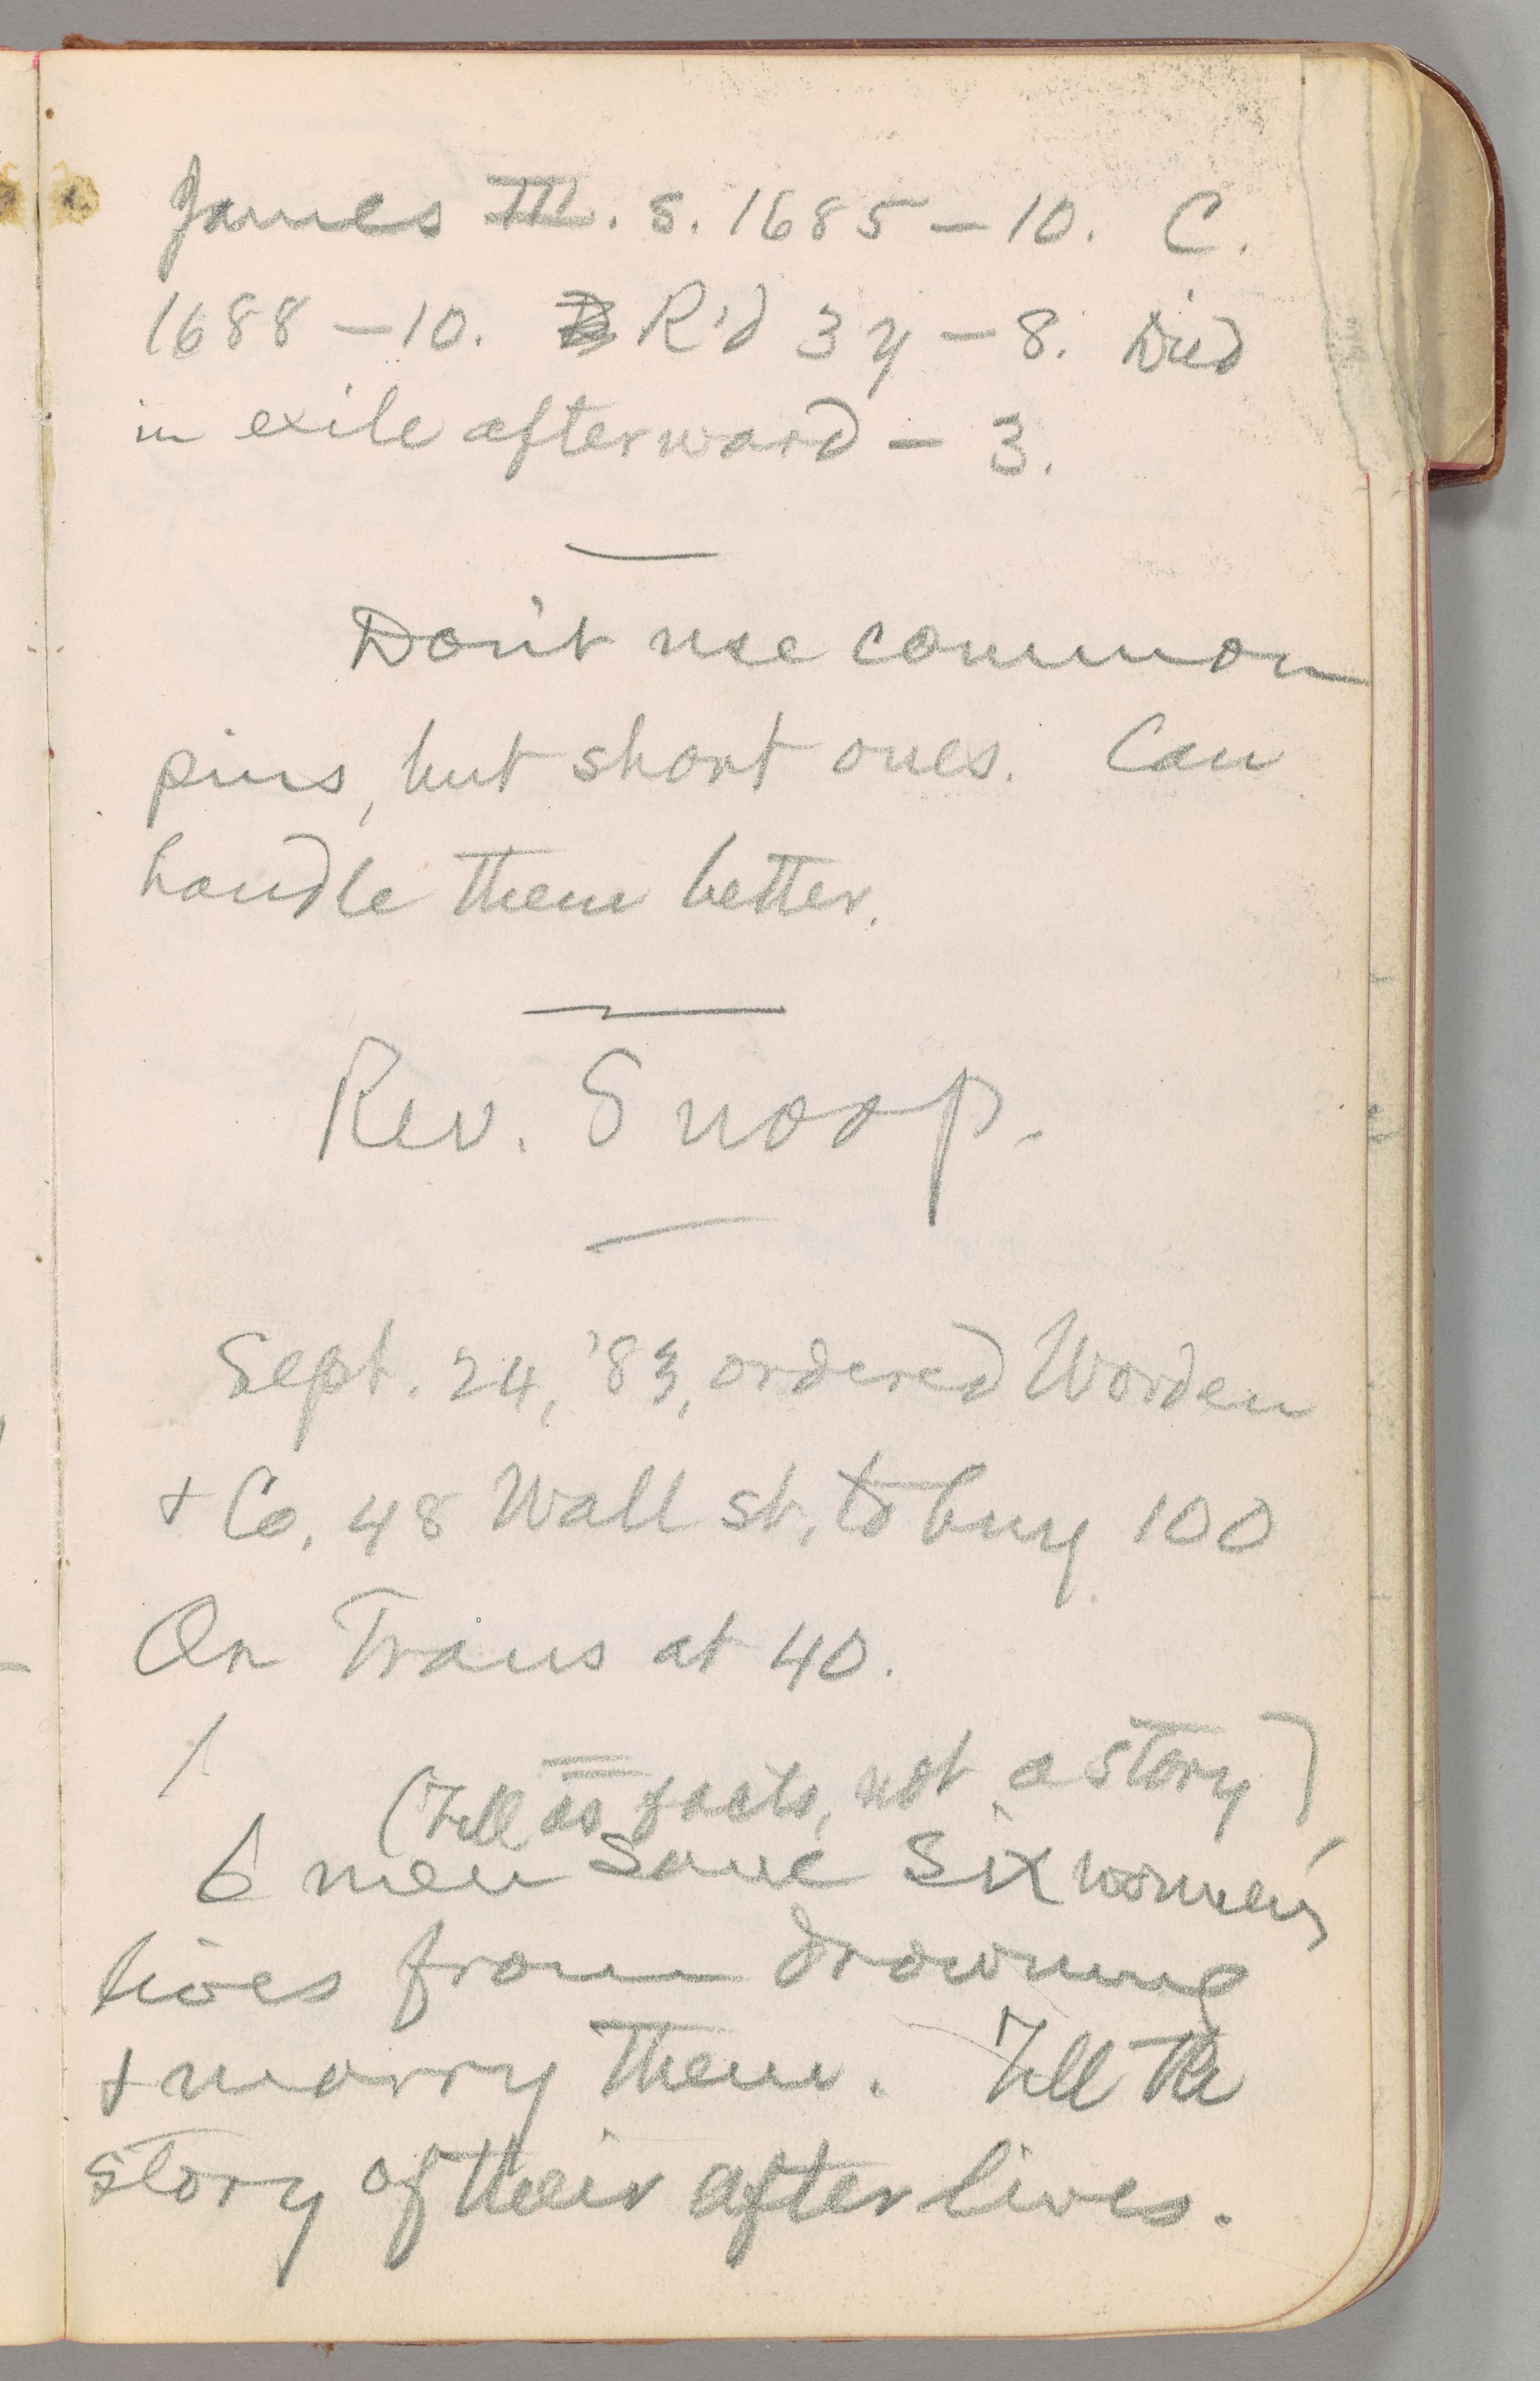 James III. S. 1685 – 10. C.
1688 – 10. R'd 3 y – 8. Died
in exile afterward – 3.
Don't use common
pins, but short ones. Can
handle them better.
Rev. Snoop.
Sept. 24, '83, ordered Worden
+ Co, 48 Wall st, to buy 100
Or Trans at 40.
(Tell as facts, not a story)
6 men save six women's
lives from drowning
+ marry them. Tell the
story of their after lives.